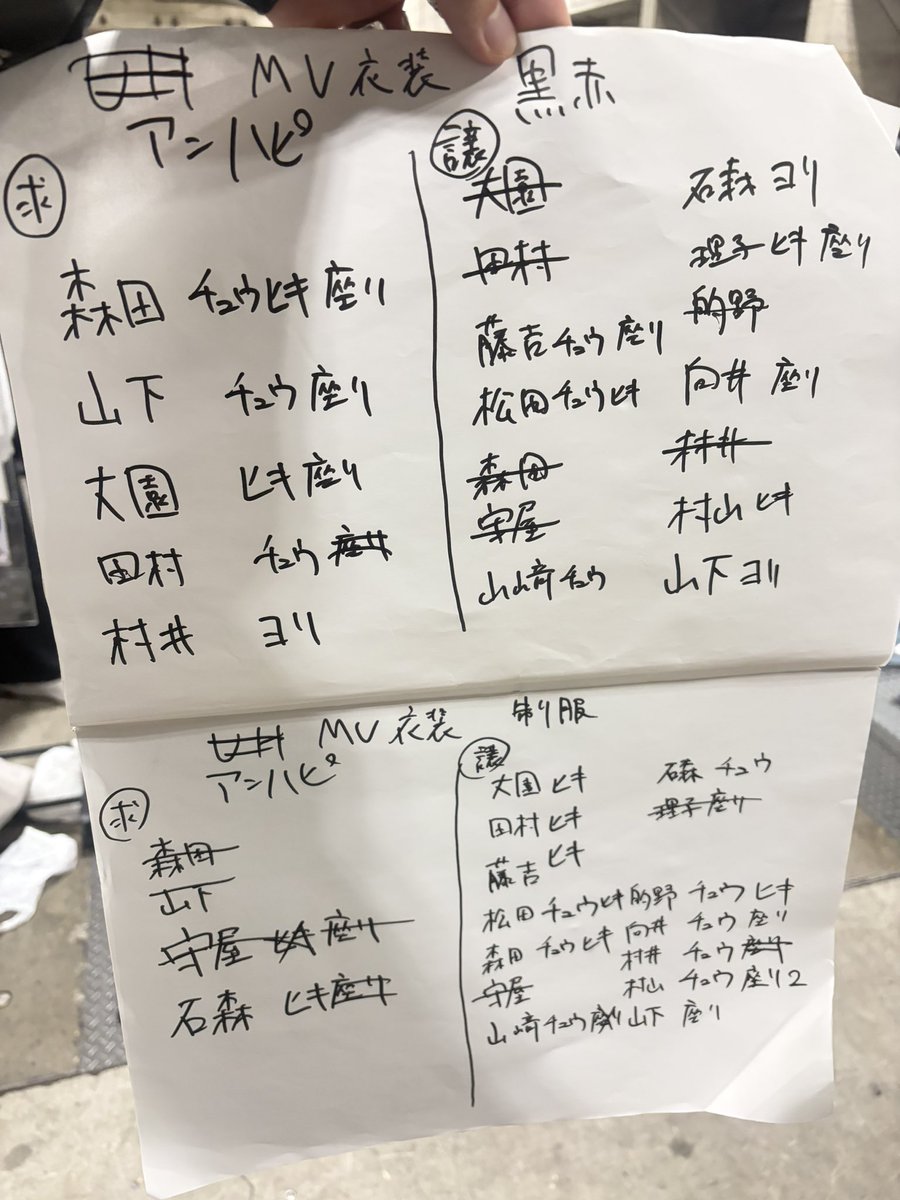 MV衣装 黒赤
アンハピ
求
森田 チュウヒキ座り
山下 チュウ座り
大園 ヒキ座り
田村 チュウ座り
村井 ヨリ
譲
大園
田村
藤吉チュウ座り
松田チュウヒキ
森田
守屋
山﨑チュウ
石森ヨリ
理子ヒキ座り
的野
向井 座り
村井
村山ヒキ
山下ヨリ
MV衣装 制服
アンハピ
求
森田
山下
守屋 ヒキ座り
石森 ヒキ座り
譲
大園ヒキ
田村ヒキ
藤吉ヒキ
松田チュウヒキ
森田チュウヒキ
守屋
山﨑チュウ座り
石森チュウ
理子座り
的野チュウヒキ
向井チュウ座り
村井チュウ座り
村山チュウ座り2
山下 座り